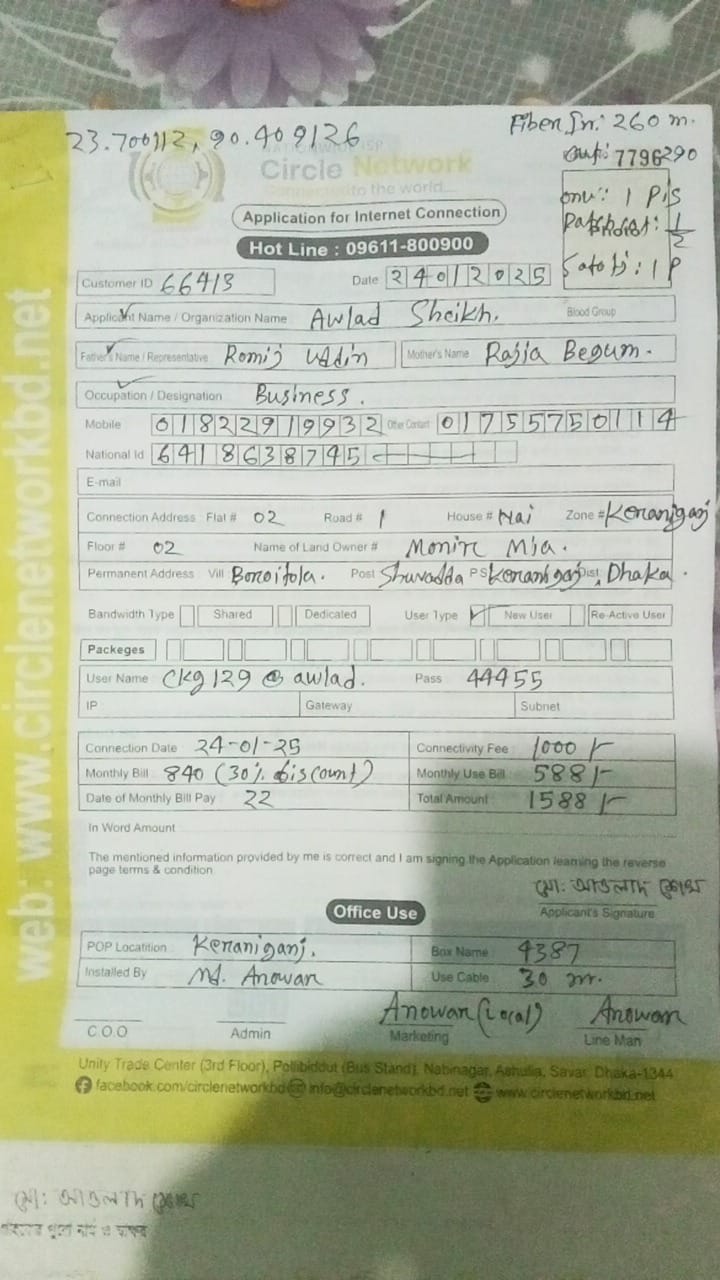 23.700112, 90.409126
Fiber In: 260 m.
out: 7796290
Circle Network
Connected to the world...
onu: 1 Pis
Application for Internet Connection
Patchcord: 1/2
Hot Line : 09611-800900
1 P
Customer ID 66413 Date 24012025
Applicant Name / Organization Name Awlad Sheikh. Blood Group
Father's Name / Representative Romij Uddin Mother's Name Rajia Begum.
Occupation / Designation Business.
Mobile 01822919932 Other Contact 01755750114
National Id 6418638745
E-mail
Connection Address Flat # 02 Road # 1 House # Nai Zone # Keraniganj
Floor # 02 Name of Land Owner # Monir Mia.
Permanent Address Vill Boroitola. Post Shuvadda PS Keraniganj Dist. Dhaka.
Bandwidth Type Shared Dedicated User Type New User Re-Active User
Packeges
User Name Ckg129@awlad. Pass 44455
IP Gateway Subnet
Connection Date 24-01-25 Connectivity Fee 1000/-
Monthly Bill 840 (30% discount) Monthly Use Bill 588/-
Date of Monthly Bill Pay 22 Total Amount 1588/-
In Word Amount
The mentioned information provided by me is correct and I am signing the Application learning the reverse
page terms & condition
মো: আওলাদ শেখ
Applicant's Signature
Office Use
POP Locatition Keraniganj. Box Name 4387
Installed By Md. Anowar Use Cable 30 m.
Anowar (Local) Anowar
C.O.O Admin Marketing Line Man
Unity Trade Center (3rd Floor), Pollibiddut (Bus Stand), Nabinagar, Ashulia, Savar, Dhaka-1344
facebook.com/circlenetworkbd info@circlenetworkbd.net www.circlenetworkbd.net
web: www.circlenetworkbd.net
মো: আওলাদ শেখ